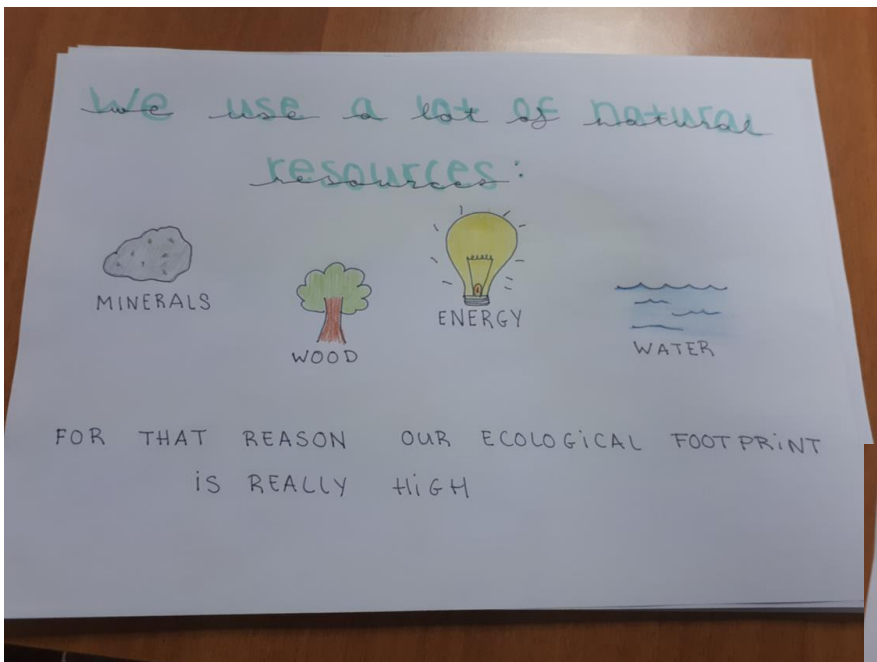 We use a lot of natural
resources:
MINERALS
WOOD
ENERGY
WATER
FOR THAT REASON OUR ECOLOGICAL FOOTPRINT
IS REALLY HIGH